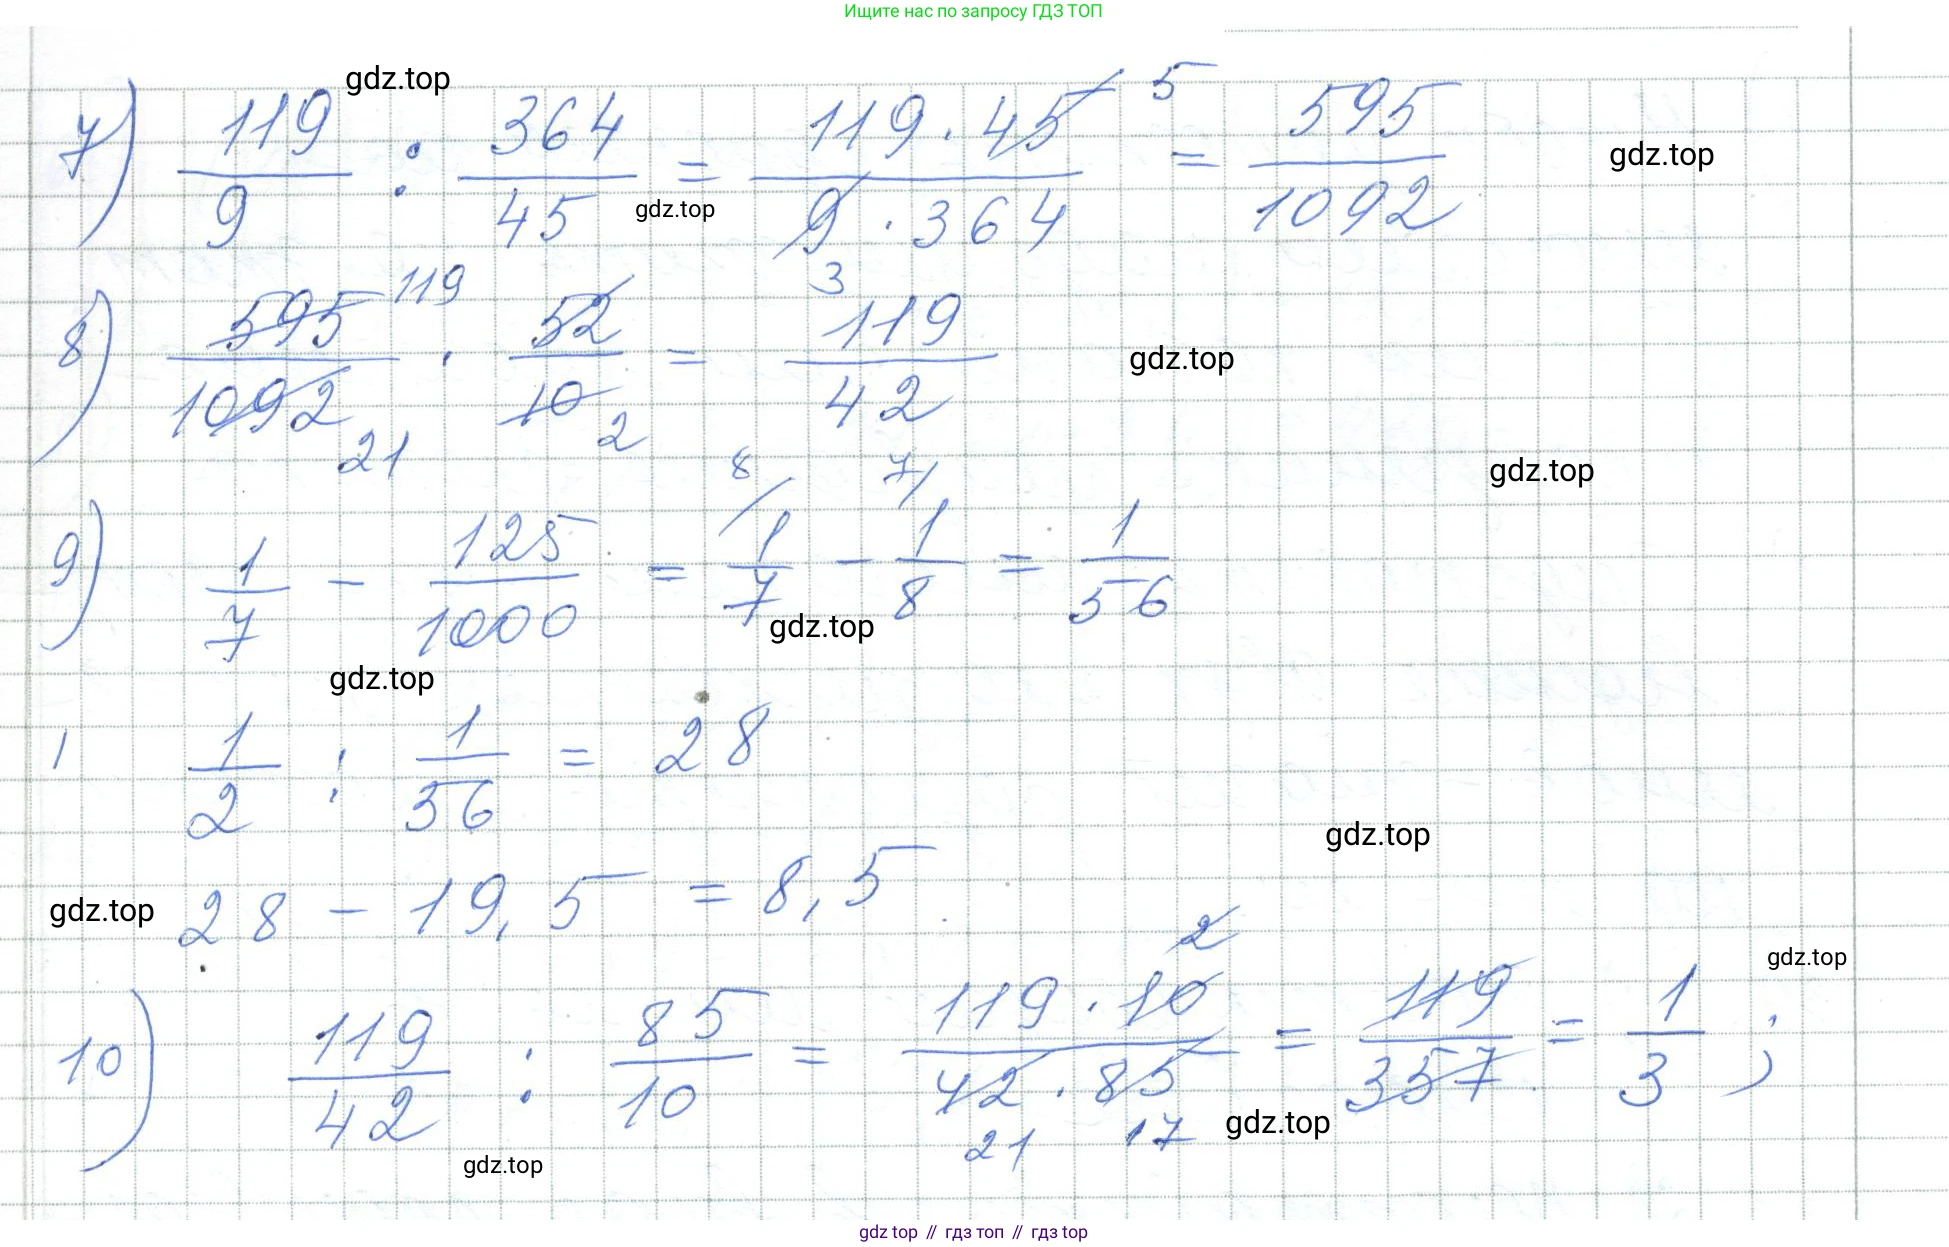 Ищите нас по запросу ГДЗ ТОП
gdz.top
7) 119/9 : 364/45 = 119 · 45 5/9 · 364 = 595/1092
gdz.top
gdz.top
3
8) 595 119/1092 21 · 52/10 2 = 119/42
gdz.top
gdz.top
9) 1/7 - 125/1000 = 8/ 1/7 - 7/ 1/8 = 1/56
gdz.top
gdz.top
1/2 : 1/56 = 28
gdz.top
28 - 19,5 = 8,5
gdz.top
gdz.top
10) 119/42 : 85/10 = 119 · 10 2/42 · 85 = 119/357 = 1/3 ;
21 17
gdz.top
gdz.top
gdz top // гдз топ // гдз top